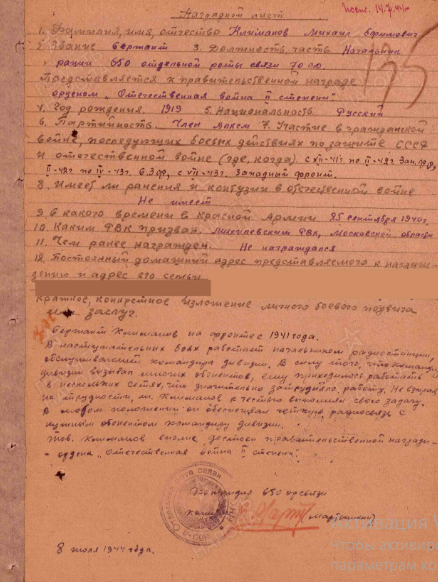 Наградной лист
1. Фамилия, имя, отчество Климанов Михаил
2. Звание Сержант 3. Должность, часть Начальник
рации 650 отдельной роты связи 70 сд.
Представляется к правительственной награде
орденом „Отечественная война II степени"
4. Год рождения. 1919 5. Национальность. Русский
6. Партийность. Член 7. Участие в гражданской
войне, последующих боевых действиях по защите СССР
и отечественной войне (где, когда).
Западный фронт.
8. Имеет ли ранения и контузии в отечественной войне
Не имеет
9. С какого времени в Красной Армии 25 сентября 1940г.
10. Каким РВК призван. РВК, Московской области
11. Чем ранее награжден. Не награждался
12. Постоянный домашний адрес представляемого к награж-
дению и адрес его семьи
Краткое, конкретное изложение личного боевого подвига
или заслуг.
Сержант Климанов на фронте с 1941 года.
В наступательных боях работает начальником радиостанции,
обслуживающей командира дивизии. В силу того, что командир
дивизии вызывал многих абонентов, ему приходилось работать
в нескольких сетях, что значительно затрудняло работу. Не взирая
на трудности, т. Климанов с честью выполнял свою задачу.
В любом положении он обеспечивал четкую радиосвязь с
нужным абонентом командиру дивизии.
Тов. Климанов вполне достоин правительственной награды
- ордена „Отечественная война II степени".
Командир 650 орсвязи
8 июля 1944 года.
Активация
Чтобы активир
параметрам ко